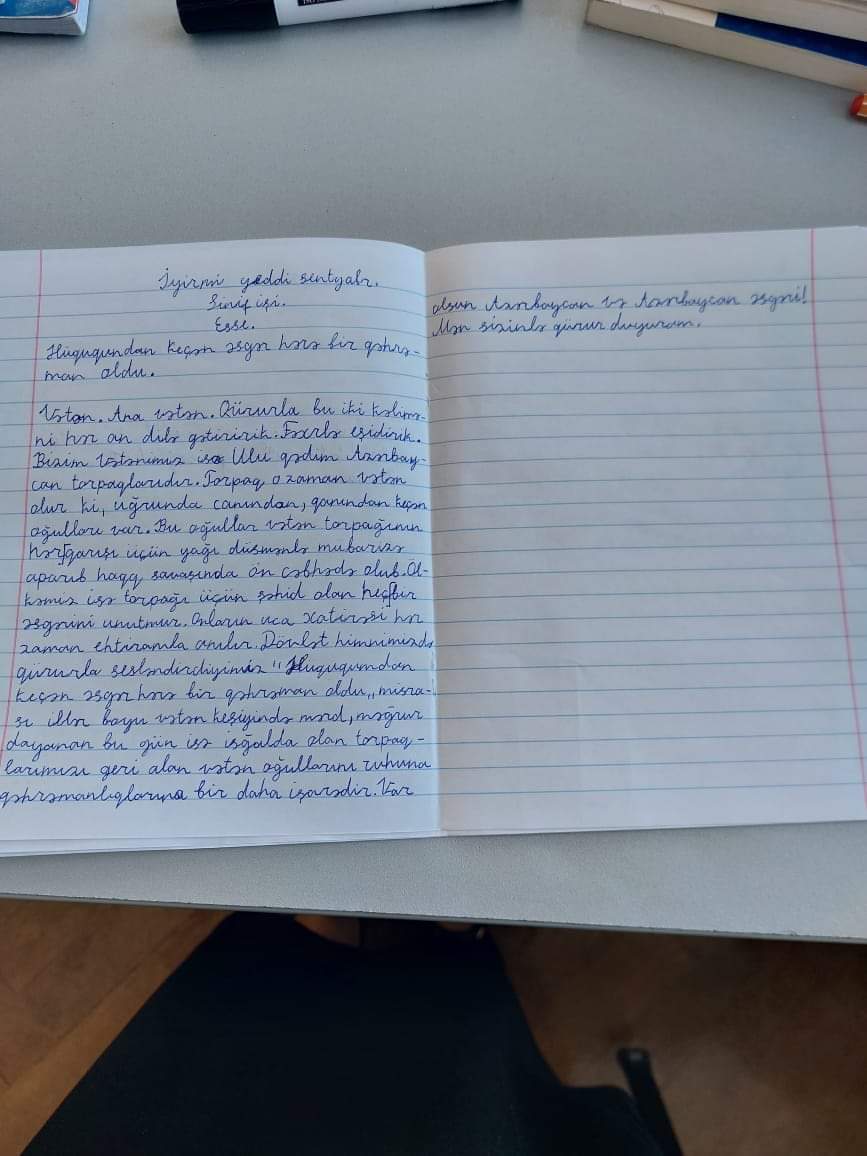 İyirmi yeddi sentyabr.
Sinif işi.
Esse.
Hüququndan keçən əsgər hərə bir qəhrə-
man oldu.
Vətən. Ana vətən. Qürurla bu iki kəlmə-
ni hər an dilə gətiririk. Fəxrlə eşidirik.
Bizim Vətənimiz isə Ulu qədim Azərbay-
can torpaqlarıdır. Torpaq o zaman vətən
olur ki, uğrunda canından, qanından keçən
oğulları var. Bu oğullar vətən torpağının
hər qarışı üçün yağı düşmənlə mubarizə
aparıb haqq savaşında ön cəbhədə olub. Öl-
kəmiz isə torpağı üçün şəhid olan heç bir
əsgərini unutmur. Onların uca xatirəsi hər
zaman ehtiramla anılır. Dövlət himnimizdə
qürurla səsləndirdiyimiz "Huququmdan
keçən əsgər hərə bir qəhrəman oldu,, misra-
sı illər boyu vətən keşiyində mərd, məğrur
dayanan bu gün isə işğalda olan torpaq-
larımızı geri alan vətən oğullarını ruhuna
qəhrəmanlıqlarına bir daha işarədir. Var
olsun Azərbaycan və Azərbaycan əsgəri!
Mən sizinlə qürur duyuram.